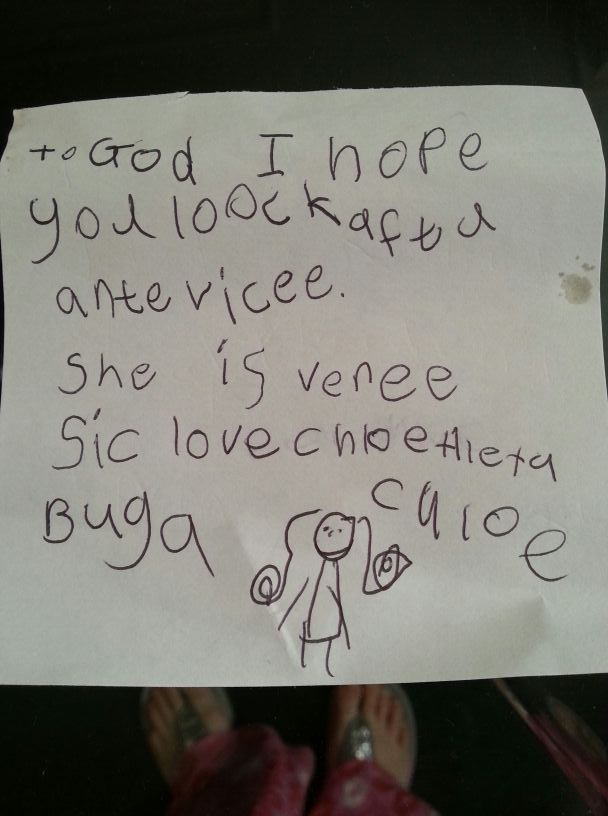 to God I hope
you loock afta
ante vicee.
She is veree
Sic love chloe
Buga chloe